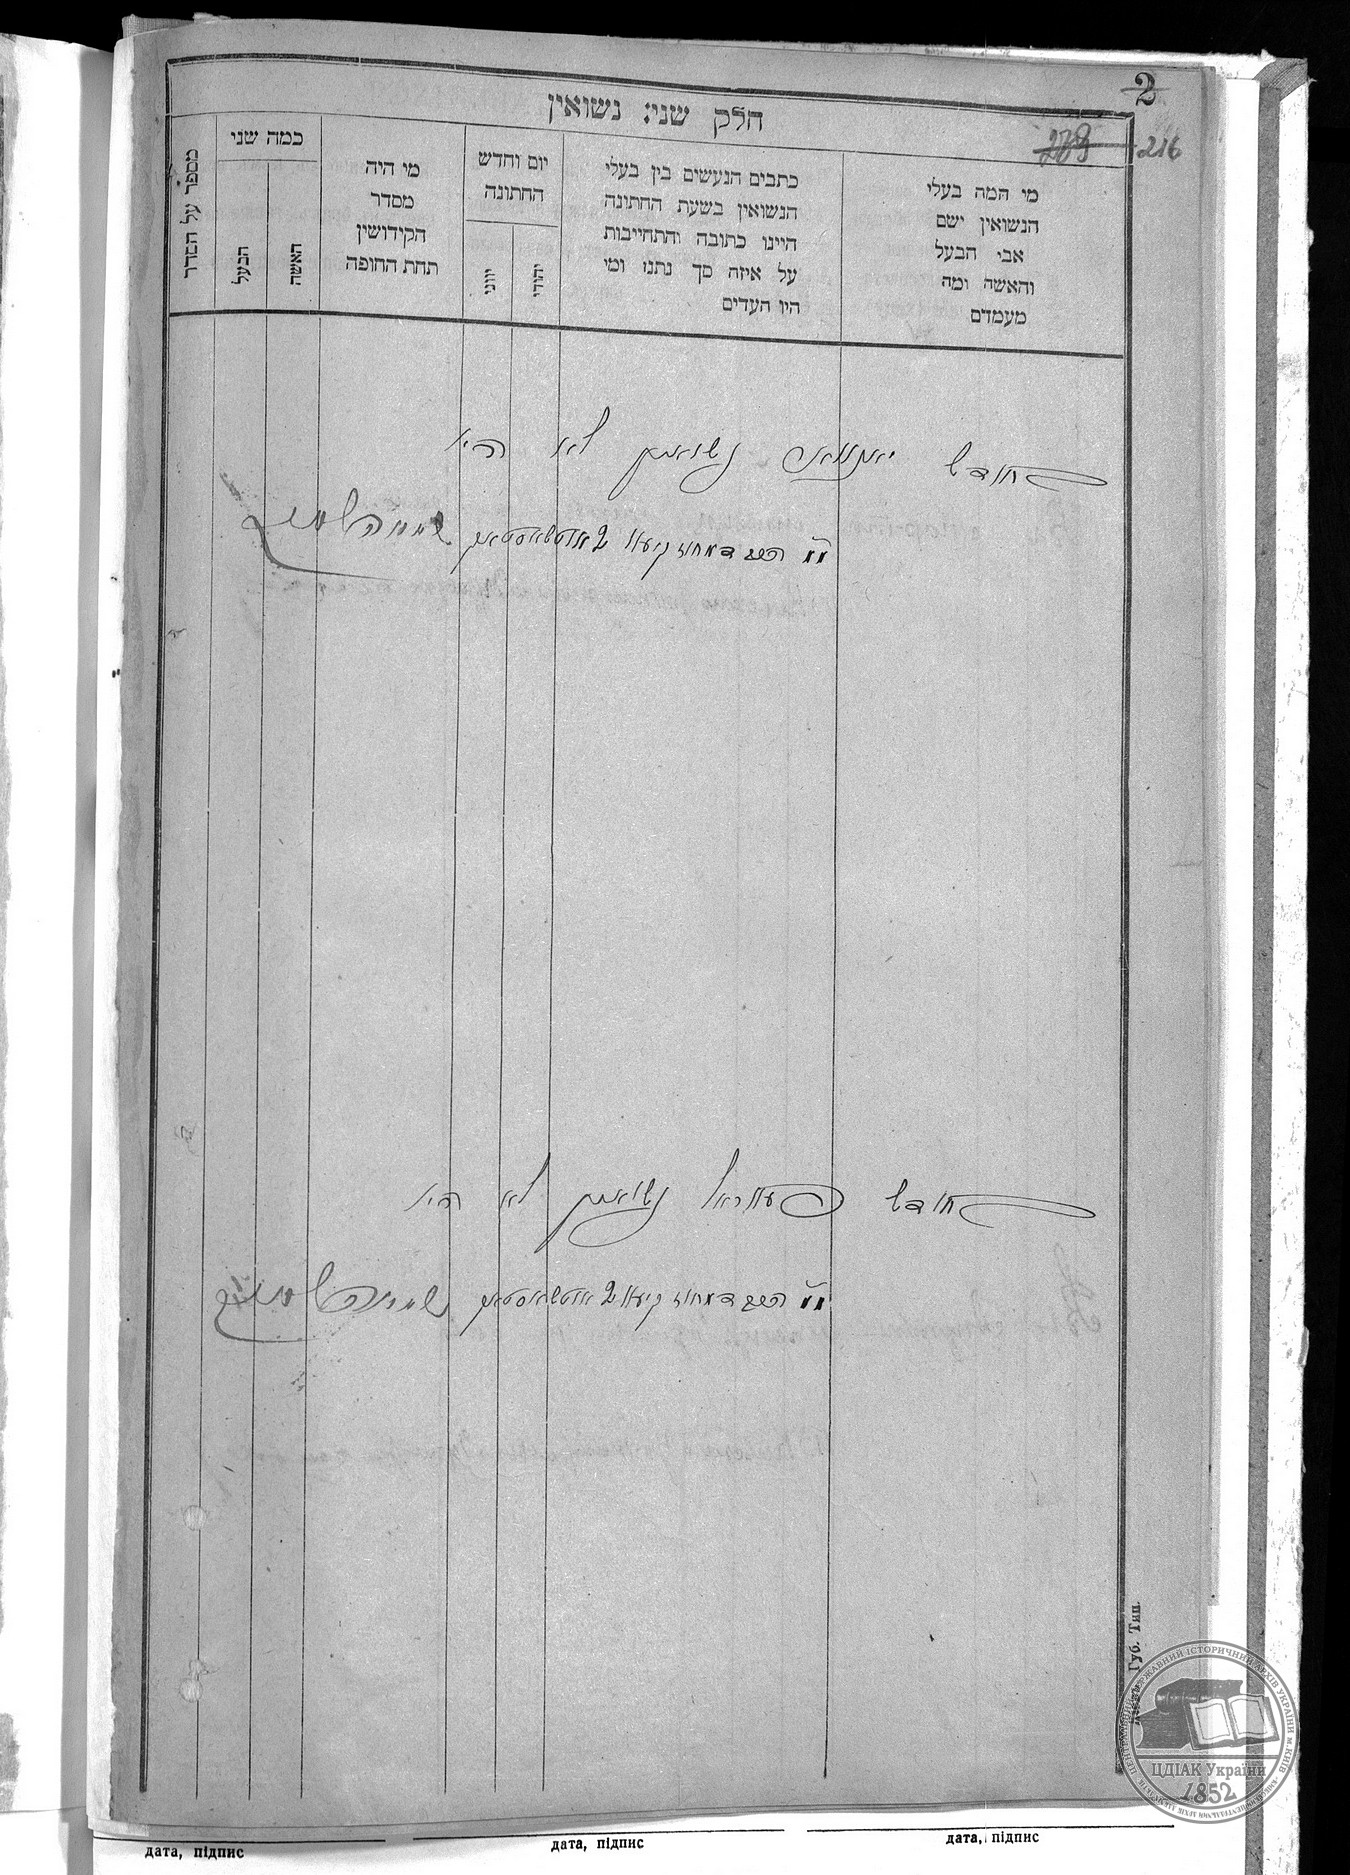 2
חלק שני: נשואין
239 216
מספר על הסדר
כמה שני
הבעל
האשה
מי היה
מסדר
הקידושין
תחת החופה
יום וחדש
החתונה
יוני
יהודי
כתבים הנעשים בין בעלי
הנשואין בשעת החתונה
היינו כתובה והתחייבות
על איזה סך נתנו ומי
היו העדים
מי המה בעלי
הנשואין ישם
אבי הבעל
והאשה ומה
מעמדם
חודש יאנוואר נשואין לא היו
חודש פעווראל נשואין לא היו
Губ. Тип.
ЦЕНТРАЛЬНИЙ ДЕРЖАВНИЙ ІСТОРИЧНИЙ АРХІВ УКРАЇНИ м.КИЇВ
ЦДІАК України
1852
дата, підпис дата, підпис дата, підпис